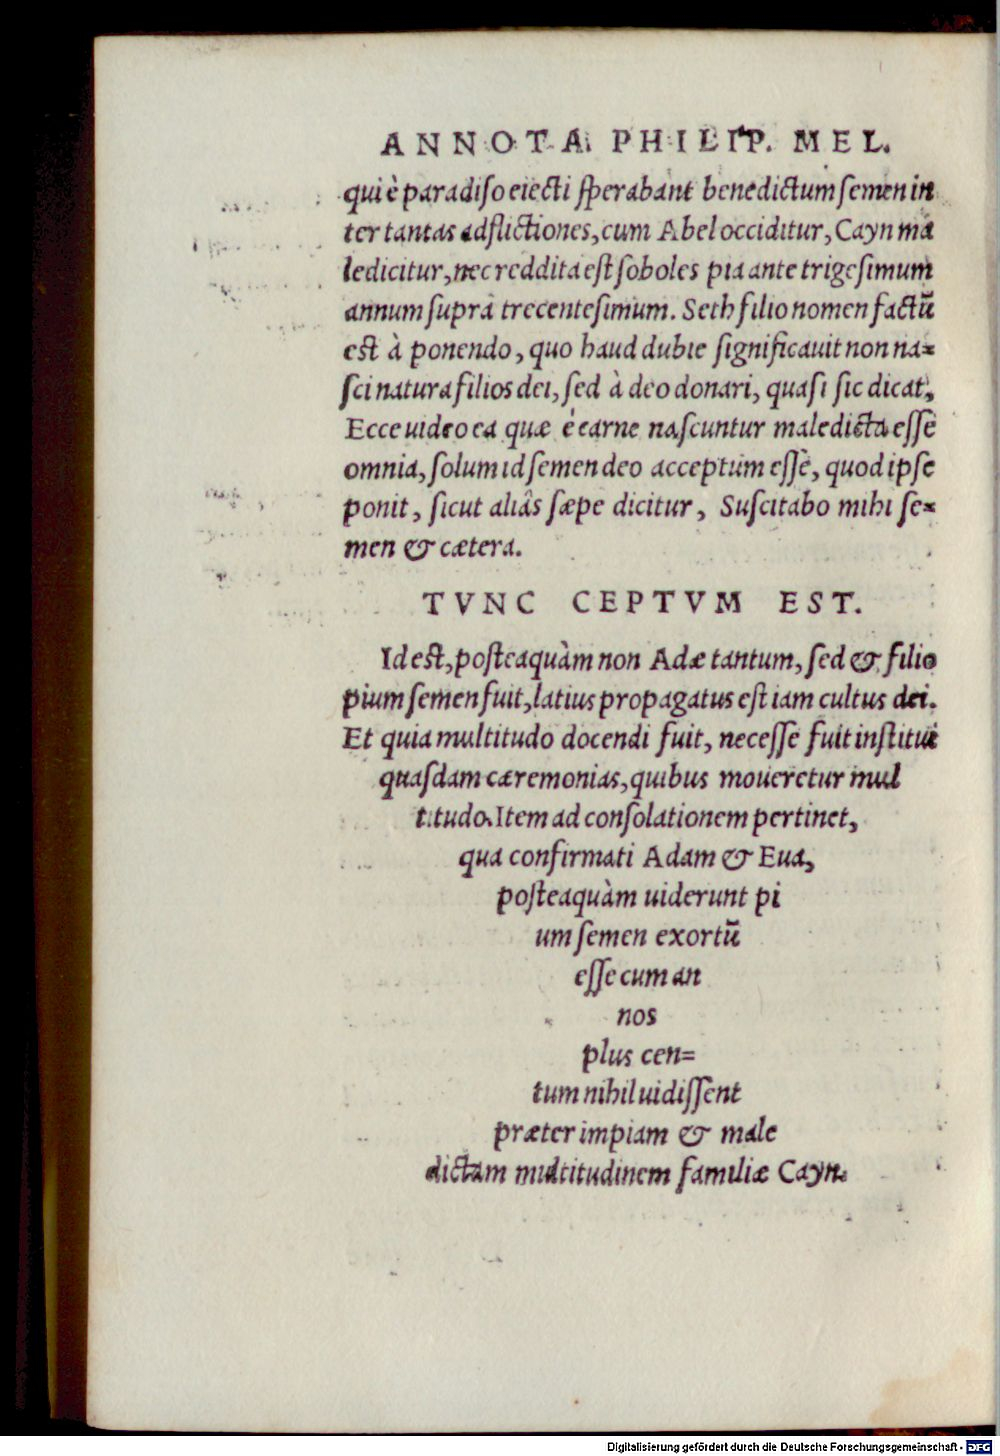 ANNOTA. PHILIP. MEL.
qui è paradiso eiecti sperabant benedictum semen in
ter tantas adflictiones, cum Abel occiditur, Cayn ma
ledicitur, nec reddita est soboles pia ante trigesimum
annum supra trecentesimum. Seth filio nomen factũ
est à ponendo, quo haud dubie significauit non na=
sci natura filios dei, sed à deo donari, quasi sic dicat,
Ecce uideo ea quæ è carne nascuntur maledicta esse
omnia, solum id semen deo acceptum esse, quod ipse
ponit, sicut aliâs sæpe dicitur, Suscitabo mihi se=
men & cætera.
TVNC CEPTVM EST.
Id est, posteaquàm non Adæ tantum, sed & filio
pium semen fuit, latius propagatus est iam cultus dei.
Et quia multitudo docendi fuit, necesse fuit institui
quasdam cæremonias, quibus moueretur mul
titudo. Item ad consolationem pertinet,
qua confirmati Adam & Eua,
posteaquàm uiderunt pi
um semen exortũ
esse cum an
nos
plus cen=
tum nihil uidissent
præter impiam & male
dictam multitudinem familiæ Cayn.
Digitalisierung gefördert durch die Deutsche Forschungsgemeinschaft - DFG